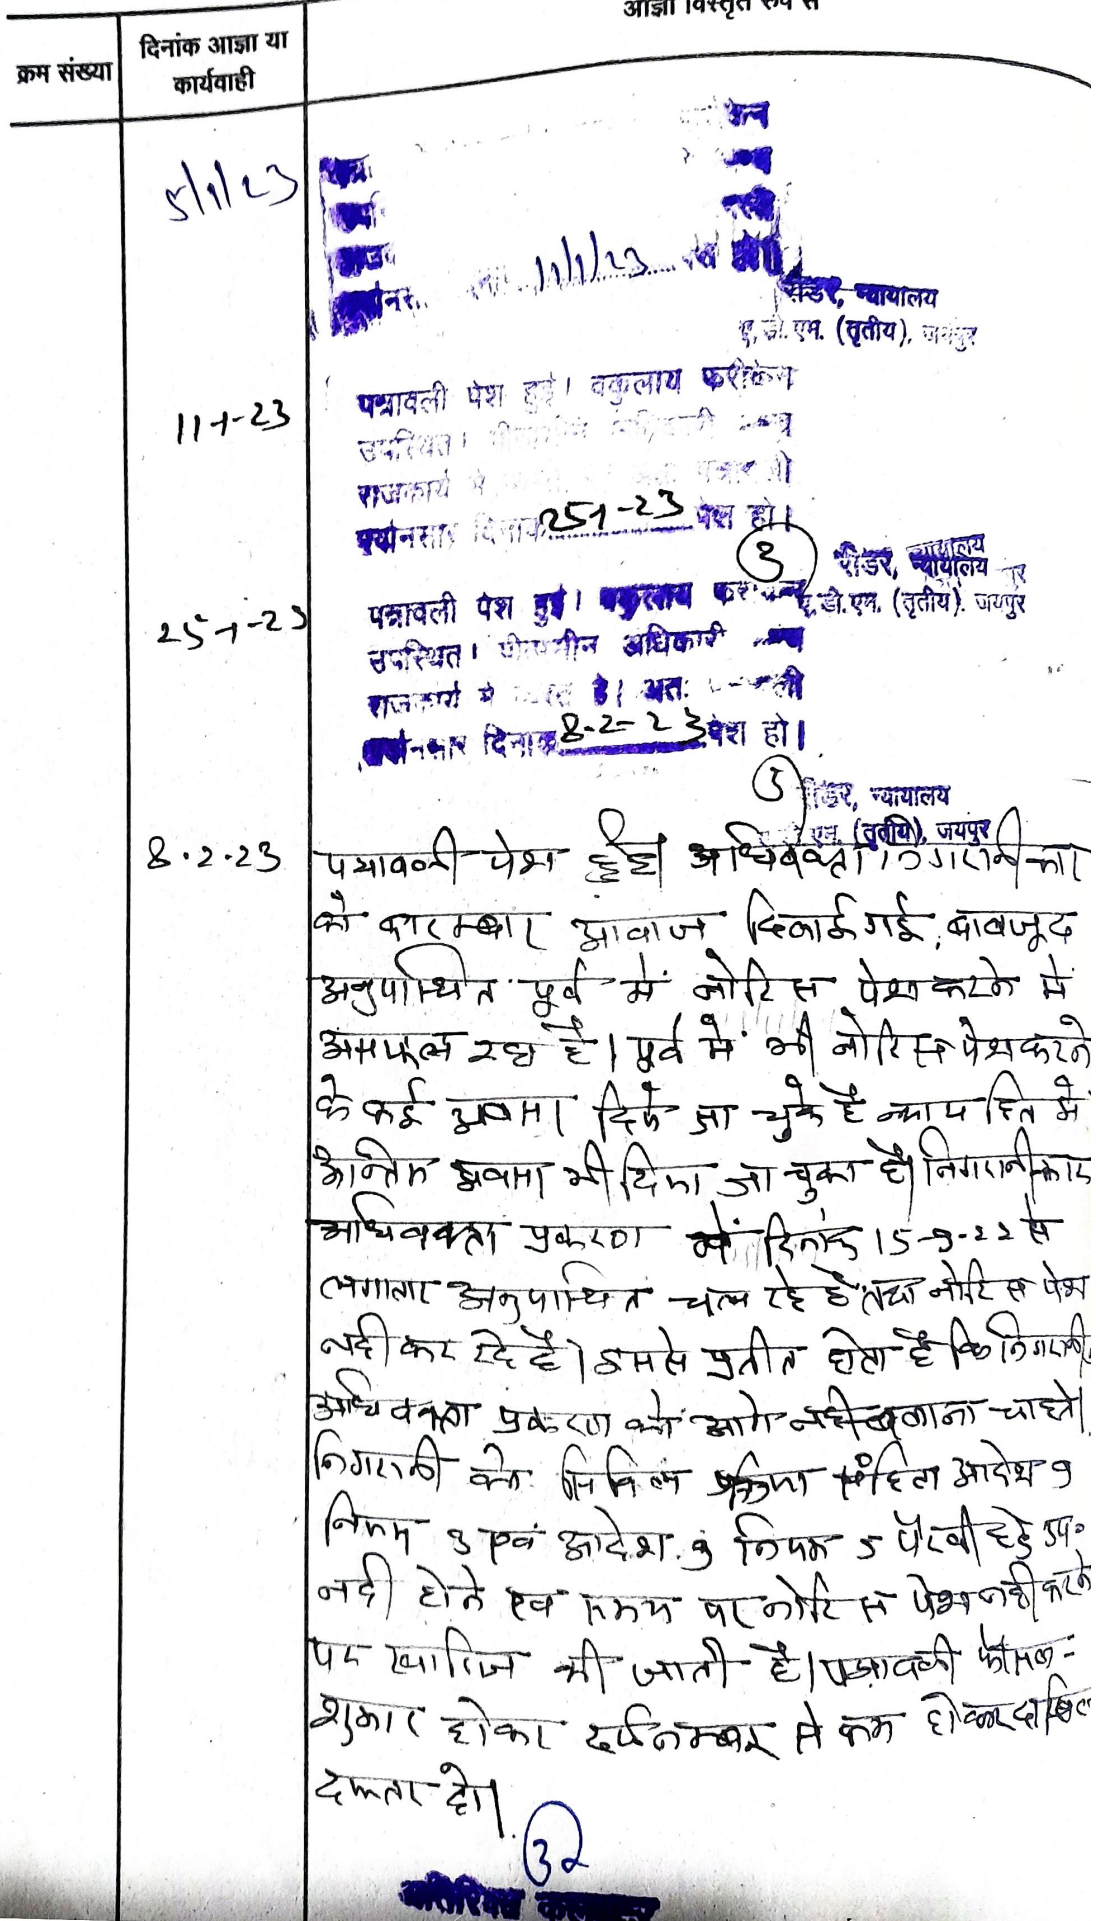 आज्ञा विस्तृत रूप से
क्रम संख्या
दिनांक आज्ञा या
कार्यवाही
5/1/23
11/1/23
रीडर, न्यायालय
ए.डी.एम. (तृतीय), जयपुर
11-1-23
पत्रावली पेश हुई। वकुलाय फरीकेन
उपस्थित।
राजकार्य मे
दिनांक 25-1-23 पेश हो।
3
रीडर, न्यायालय
ए.डी.एम. (तृतीय). जयपुर
25-1-23
पत्रावली पेश हुई। वकुलाय
उपस्थित। पीठासीन अधिकारी
राजकार्य मे व्यस्त है। अतः
दिनांक 8-2-23 पेश हो।
रीडर, न्यायालय
एम. (तृतीय), जयपुर
8.2.23
पत्रावली पेश हुई। अधिवक्ता निगरानीकार
को बारम्बार आवाज दिलाई गई, बावजूद
अनुपस्थित पूर्व में नोटिस पेश करने मे
असफल रहा है। पूर्व मे भी नोटिस पेश करने
के कई अवसर दिये जा चुके है न्याय हित में
अन्तिम अवसर भी दिया जा चुका है। निगरानीकार
अधिवक्ता प्रकरण में दिनांक 15-9-22 से
लगातार अनुपस्थित चल रहे है तथा नोटिस पेश
नही कर रहे है। इससे प्रतीत होता है कि निगरानी
अधिवक्ता प्रकरण को आगे नही चलाना चाहते।
निगरानी को सिविल प्रक्रिया संहिता आदेश 9
नियम 3 एवं आदेश 9 नियम 5 पैरवी हेतु उप॰
नही होने एवं समय पर नोटिस पेश नही करने
पर खारिज की जाती है। पत्रावली फैसल-
शुमार होकर दर्ज नम्बर से कम होकर दाखिल
दफ्तर हो।
अतिरिक्त कलक्टर